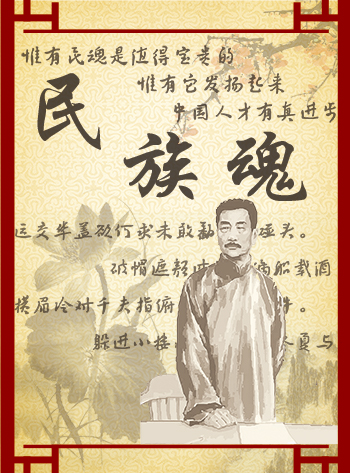 惟有民魂是值得宝贵的
惟有它发扬起来
中国人才有真进步
民
族魂
运交华盖欲何求未敢翻 碰头。
破帽遮颜 漏船载酒
横眉冷对千夫指俯 牛。
躲进小楼 冬夏与